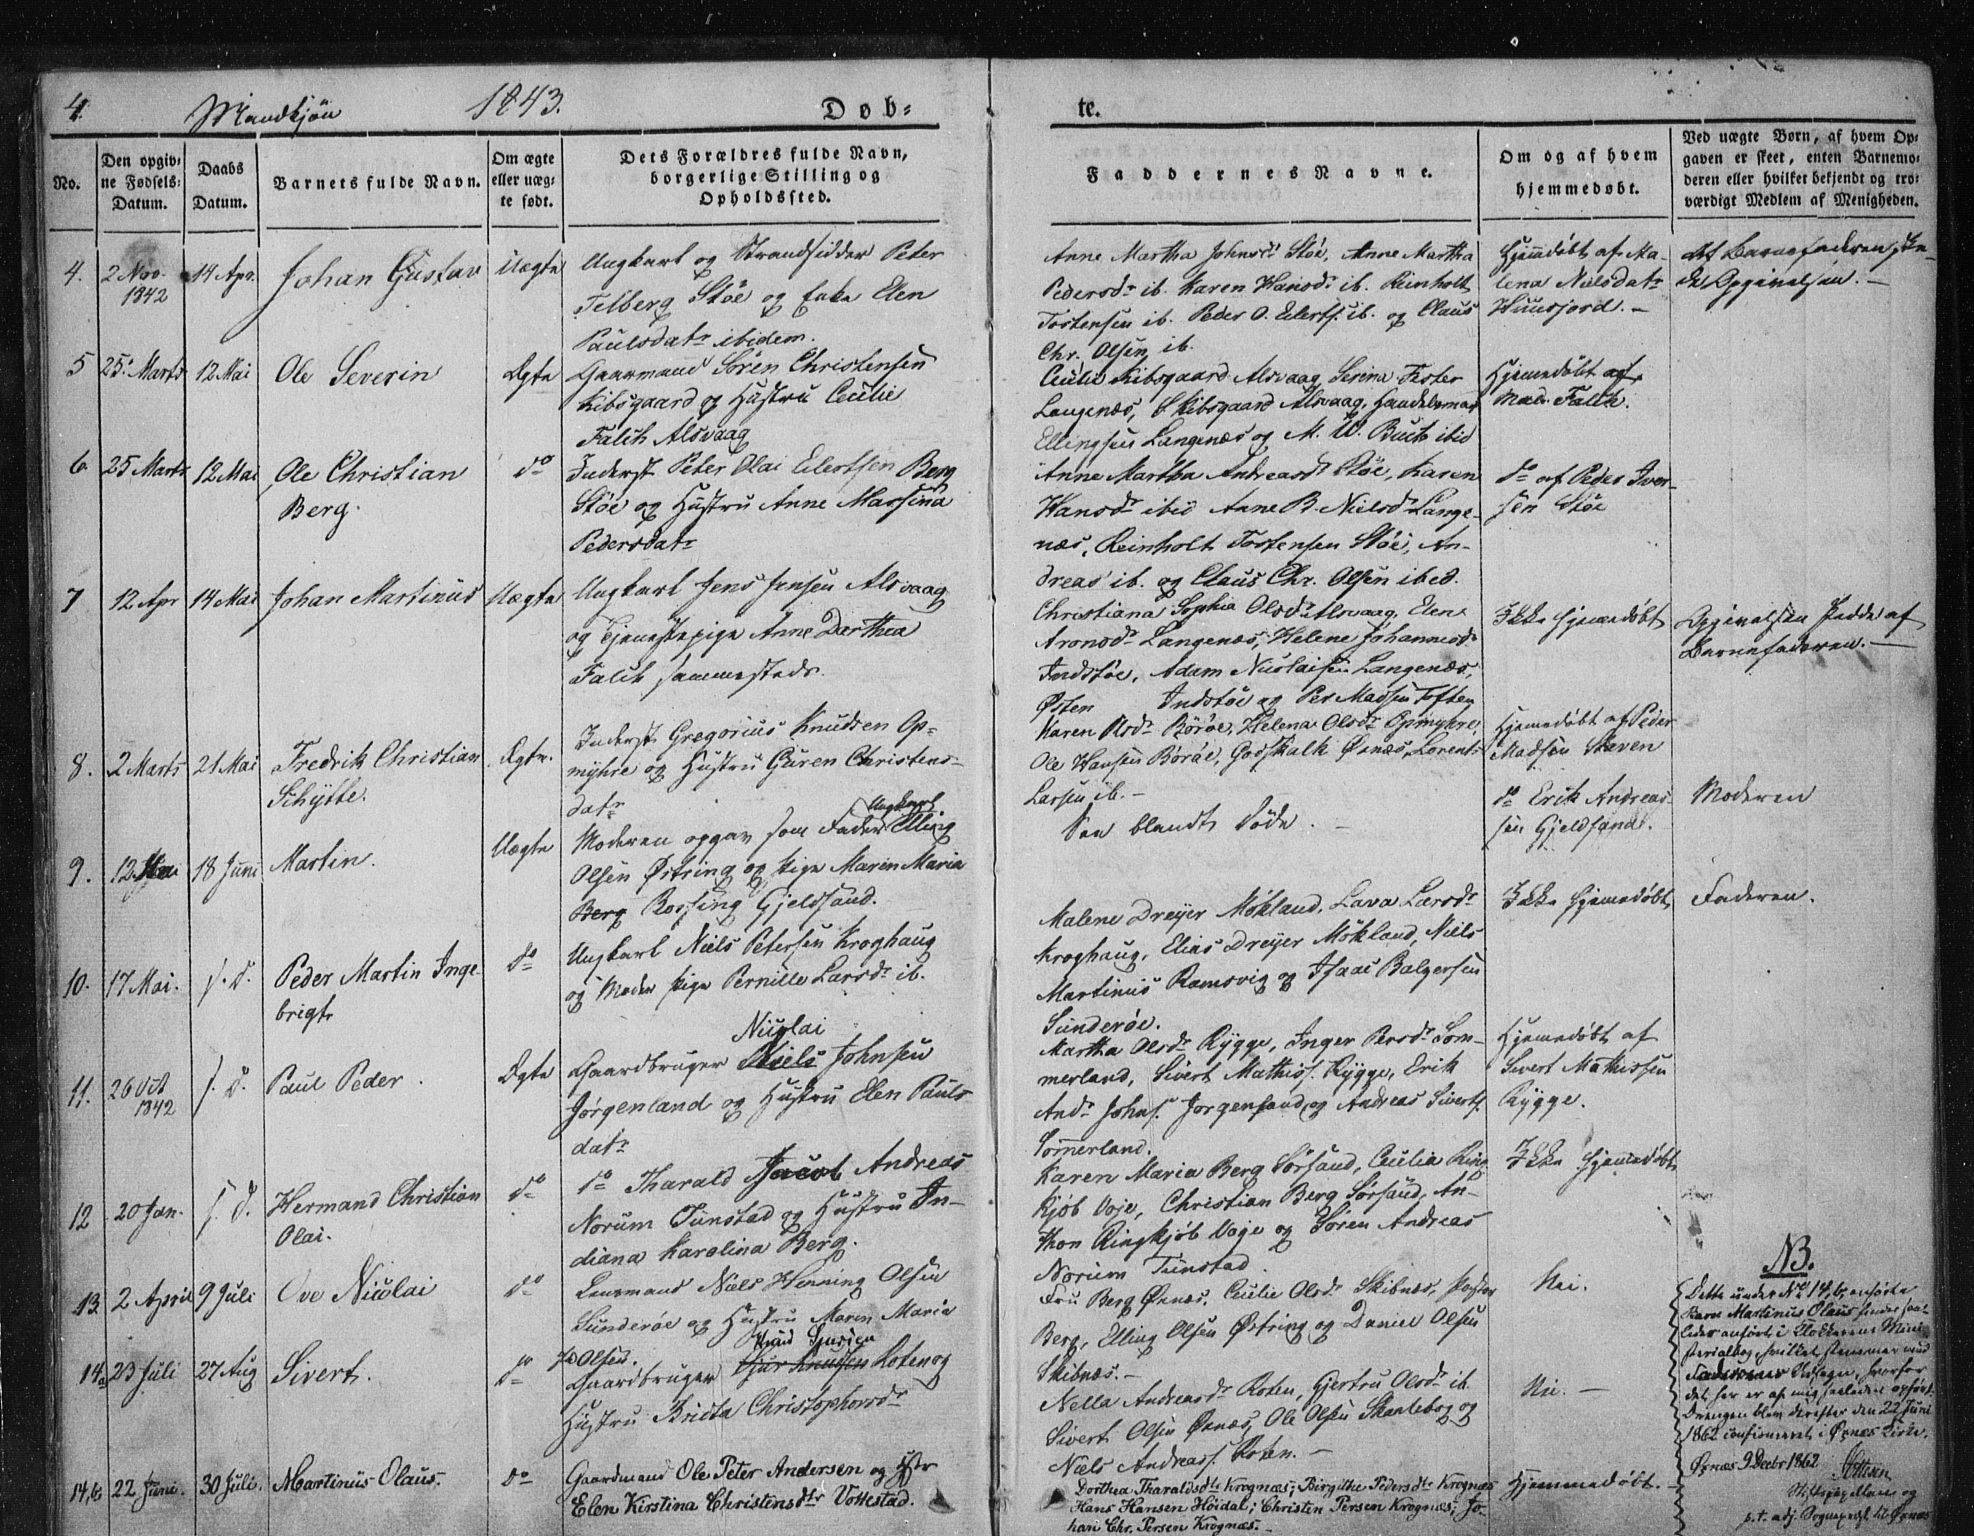 4. Mandkjön 1843. Døb= te.
No.
Den opgiv=
ne Fødsels=
Datum.
Daabs
Datum.
Barnets fulde Navn.
Om ægte
eller uæg=
te født.
Dets Forældres fulde Navn,
borgerlige Stilling og
Opholdssted.
Faddernes Navne.
Om og af hvem
hjemmedøbt.
Ved uægte Børn, af hvem Op=
gaven er skeet, enten Barnemo=
deren eller hvilket bekjendt og tro=
værdigt Medlem af Menigheden.
4. 2 Nov. 14 Apr. Johan Gustav Uægte
1842
Ungkarl og Strandsidder Peter
Telberg Støe og Enke Elen
Paulsdatr ibidem.
Anne Martha Johnsdr Støe, Anne Martha
Pedersdr ib. Karen Hansdr ib. Reinholt
Tostensen ib. Peder O. Eilerts. ib. og Claus
Chr. Olsen ib.
Hjemmedøbt af Ma-
lena Nielsdatr
Af Barnefaderen
Opgivelsen. -
5 25. Marts 12 Mai Ole Severin Ægte
Gaarmand Sören Christensen
Kibsgaard og Hustru Cecilie
Falch Alsvaag
Cecilie Kibsgaard Alsvaag, Serina Fester
Langenæs, S. Kibsgaard Alsvaag, Handelsmand
Ellingsen Langenæs og M. W. ibid
Hjemedøbt af
Falch.
6. 25 Marts 12 Mai Ole Christian do
Berg.
Inderst Peter Olai Eilertsen Berg
Støe og Hustru Anne Massina
Pedersdatr
Anne Martha Andreasdr Støe, Karen
Hansdr ibid Anne B. Nielsdr Lange-
næs, Reinholt Tostensen Støe, An-
dreas ib. og Claus Chr. Olsen ibid.
do af Peder Iver-
sen Støe
7 12 Apr 14 Mai Johan Martinus Uægte
Ungkarl Jens Jensen Alsvaag
og Tjenestepige Anne Darthea
Falch sammesteds.
Christiana Sophia Olsdr Alsvaag, Elen
Aronsdr Langenæs, Helene Johannesdr
Indstøe, Adam Nicolaisen Langenæs,
Østen Indstøe og Per Madsen Toften
Ikke hjemedøbt
Opgivelsen skedde af
Barnefaderen. -
8. 2 Marts 21 Mai Fredrik Christian Ægte.
Schÿtte.
Inderst Gregorius Knudsen Op-
mÿhre og Hustru Guren Christens-
datr
Karen Olsdr Börøe, Helena Olsdr Opmyhre,
Ole Hansen Börøe, Godskalk Ørnæs, Lorents
Larsen ib. -
Hjemedøbt af Peder
Madsen Skeven
9. 12 Mai 18 Juni Martin. Uægte
Moderen opgav som Fader Ungkarl Elling
Olsen Østring og Pige Maren Maria
Berg Rossing Gjeldsand.
Saa blandt døde. -
do Erik Andreas-
sen Gjeldsand.
Moderen
10. 17 Mai. s. D. Peder Martin Inge- do
brigt
Ungkarl Niels Petersen Kroghaug
og Moder Pige Pernille Larsdr ib.
Malene Dreÿer Mökland, Lava Larsdr
Kroghaug, Elias Dreÿer Mökland, Niels
Martinus Ramsvig og Isaac Balgersen
Sunderøe.
Ikke hjemedøbt
Faderen.
11. 26 Oct s. D. Paul Peder. Ægte
1842
Gaardbruger Niels Nicolai Johnsen
Jørgenland og Hustru Elen Pauls-
datr
Martha Olsdr Rÿgge, Inger Persdr Som-
merland, Sivert Mathiss. Rÿgge, Erik
Andr Johns. Jorgenland og Andreas Siverts.
Somerland.
Hjemedøbt af
Sivert Mathissen
Rÿgge.
12 20 Jan. s. D. Hermand Christian do
Olai.
do Tharald Jacob Andreas
Norum Tunstad og Hustru In-
diana Karolina Berg.
Karen Maria Berg Sörsand, Cecilia Ring-
kjöb Voje, Christian Berg Sörsand, An-
thon Ringkjöb Voje og Sören Andreas
Norum Tunstad.
Ikke hjemedøbt
13. 2 April 9 Juli Ove Nicolai do
Lensmand Niels Henning Olsen
Sunderøe og Hustru Maren Maria
Fru Berg Ørnæs, Cecilie Olsdr Skibnæs, Pastor
Berg, Elling Olsen Østring og Daniel Olsen
Skibnæs. -
Nei.
14a 23 Juli 27 Aug Sivert. do
Olsen.
Gaardbruger Knudsen Roten og
Hustru Britta Christophersdr
Nella Andreasdr Roten, Gjertru Olsdr ib.
Sivert Olsen Ørnæs, Ole Olsen Skantebog og
Niels Andreass. Roten. -
Nei. -
14,b 22 Juni. 30 Juli. Martinus Olaus. do
Gaardmand Ole Peter Andersen og Hstr
Elen Kirstina Christensdtr Vottestad.
Dorthea Tharaldsdtr Krognæs; Birgithe Pedersdtr Krognæs
Hans Hansen Höidal; Christen Persen Krognæs; Jo-
han Chr. Persen Krognæs. -
Hjemmedøbt. -
NB.
Dette under No 14,b, anførte
Barn Martinus Olaus findes saa-
ledes anført i Klokkerens Mini-
sterialbog, hvilket stemmer med
Faddernes Udsagn, hvorfor
det her er af mig saaledes opført.
Drengen blev derefter den 22 Juni
1862 confirmeret i Ørnæs Kirke.
Ørnæs 9 Decbr 1862
Stiftscapellan og
p.t. adj. Sognepræst til Ørnæs